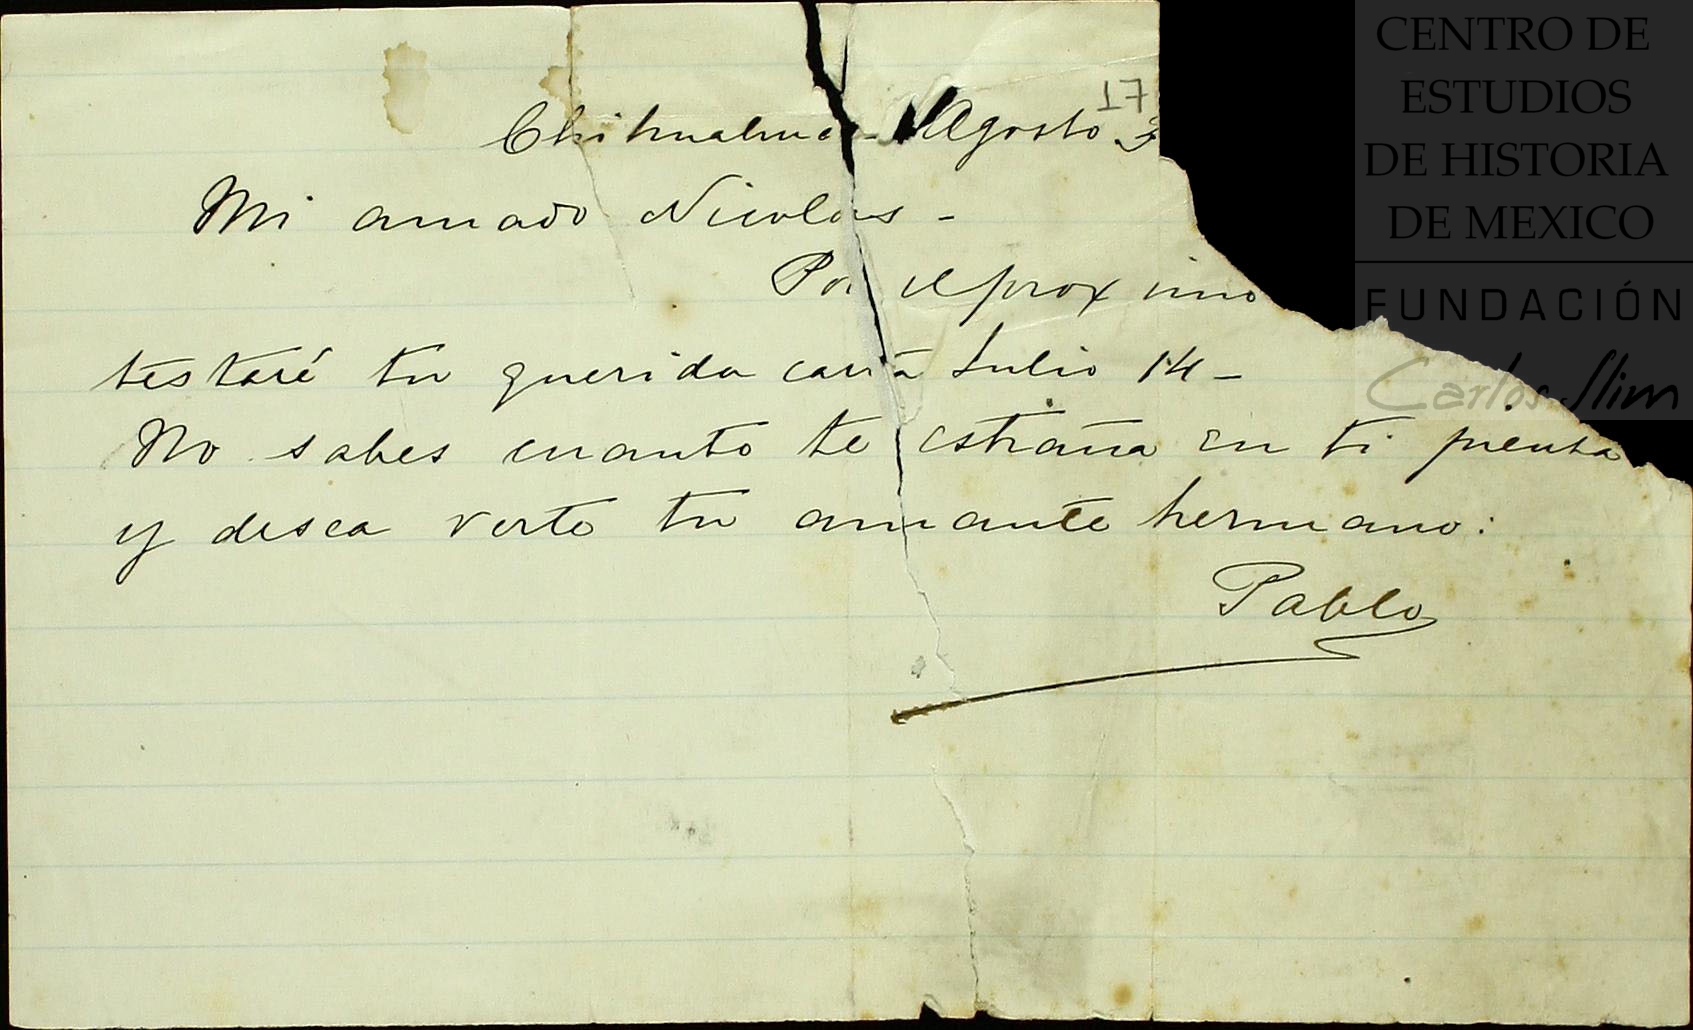 17
Chihuahua - Agosto 3
Mi amado Nicolas -
Por el proximo
testaré tu querida carta Julio 14 -
No sabes cuanto te estraña en ti piensa
y desea verte tu amante hermano:
Pablo
CENTRO DE
ESTUDIOS
DE HISTORIA
DE MEXICO
FUNDACIÓN
Carlos Slim